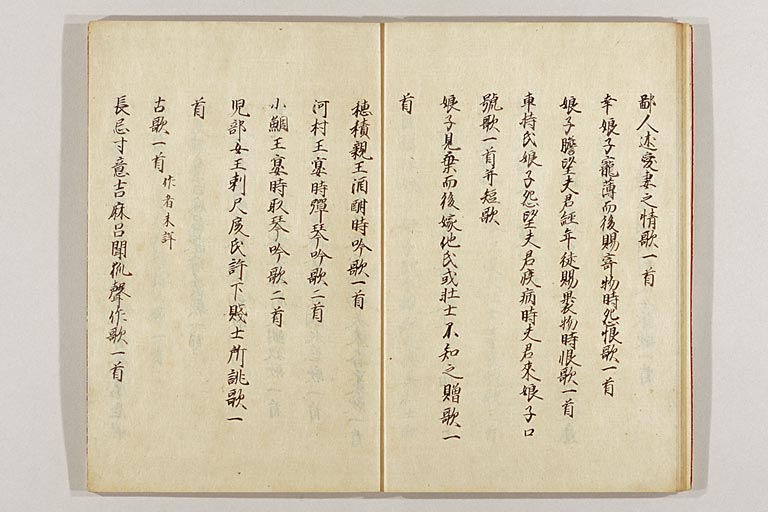 鄙人述愛妻之情歌一首
幸娘子寵薄而後賜寄物時怨恨歌一首
娘子瞻望夫君経年徒賜裹物時恨歌一首
車持氏娘子怨望夫君疾病時夫君来娘子口
號歌一首并短歌
娘子見棄而後嫁他氏或壮士不知之贈歌一
首
穂積親王酒酣時吟歌一首
河村王宴時彈琴吟歌二首
小鯛王宴時取琴吟歌二首
児部女王刺尺度氏許下賤士所誂歌一
首
古歌一首 作者未詳
長忌寸意吉麻呂聞狐聲作歌一首